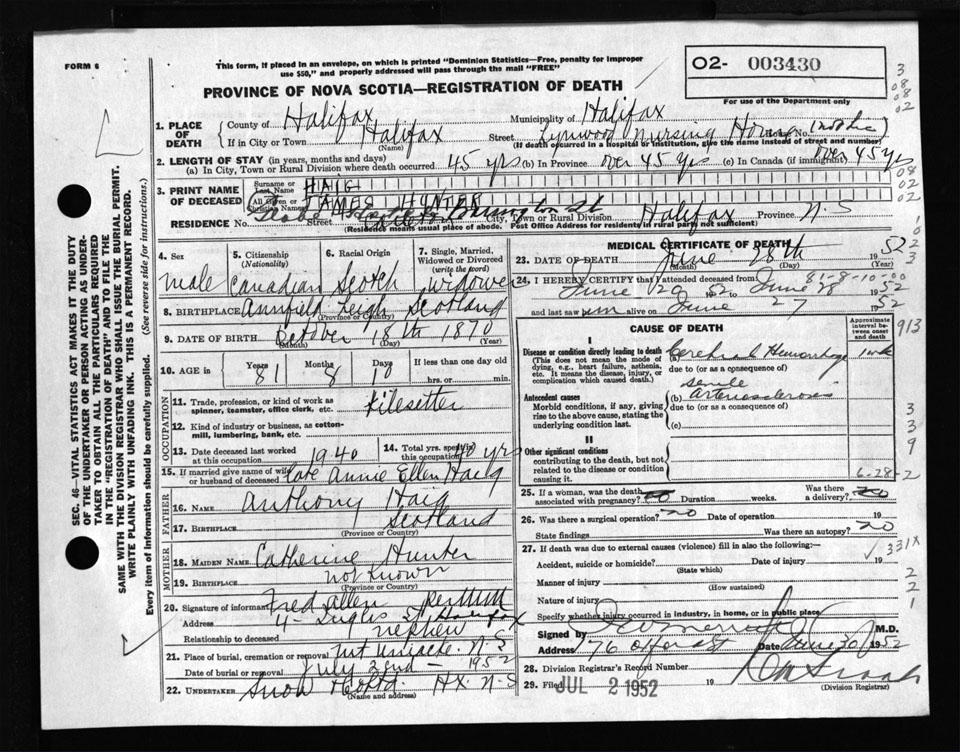 FORM 6
This form, if placed in an envelope, on which is printed "Dominion Statistics—Free, penalty for improper
use $50," and properly addressed will pass through the mail "FREE"
O2- 003430
For use of the Department only
PROVINCE OF NOVA SCOTIA—REGISTRATION OF DEATH
1. PLACE OF DEATH
County of Halifax Municipality of Halifax
If in City or Town Halifax (Name) Street Lynwood Nursing Home No.
(If death occurred in a hospital or institution, give the name instead of street and number)
2. LENGTH OF STAY (in years, months and days)
(a) In City, Town or Rural Division where death occurred 45 yrs (b) In Province over 45 yrs (c) In Canada (if immigrant) over 45 yrs
3. PRINT NAME OF DECEASED
Surname or Last Name HAIG
All Given or Christian Names JAMES HUNTER
RESIDENCE No. Street Barrington St City, Town or Rural Division Halifax Province N-S
(Residence means usual place of abode. Post Office Address for residents in rural parts not sufficient)
4. Sex male
5. Citizenship (Nationality) Canadian
6. Racial Origin Scotch
7. Single, Married, Widowed or Divorced (write the word) widower
8. BIRTHPLACE Annfield Leigh Scotland
(Province or Country)
9. DATE OF BIRTH October 18th 1870
(Month) (Day) (Year)
10. AGE in Years 81 Months 8 Days 10 If less than one day old
hrs. or min.
OCCUPATION
11. Trade, profession, or kind of work as
spinner, teamster, office clerk, etc.
12. Kind of industry or business, as cotton-
mill, lumbering, bank, etc.
13. Date deceased last worked at this occupation 1940
14. Total yrs. spent in this occupation yrs
15. If married give name of wife or husband of deceased late Annie Ellen Haig
FATHER
16. NAME Anthony Haig
17. BIRTHPLACE Scotland
(Province or Country)
MOTHER
18. MAIDEN NAME Catherine Hunter
19. BIRTHPLACE not known
(Province or Country)
20. Signature of informant Fred Allen
Address 4- Inglis St Halifax
Relationship to deceased nephew
21. Place of burial, cremation or removal Mt Uniacke. N-S
Date of burial or removal July 2nd - 1952
22. UNDERTAKER Snow & Co Ltd. Hx. N-S
(Name and address)
MEDICAL CERTIFICATE OF DEATH
23. DATE OF DEATH June 28th 1952
(Month) (Day) (Year)
81-8-10-00
24. I HEREBY CERTIFY that I attended deceased from
June 20 1952 to June 28 1952
and last saw him alive on June 27 1952
CAUSE OF DEATH
Approximate interval between onset and death
I
Disease or condition directly leading to death (a) Cerebral Hemorrhage 1 wk
(This does not mean the mode of dying, e.g., heart failure, asthenia, etc. It means the disease, injury, or complication which caused death.)
due to (or as a consequence of)
senile
Antecedent causes (b) arteriosclerosis
Morbid conditions, if any, giving rise to the above cause, stating the underlying condition last.
due to (or as a consequence of)
(c)
II
Other significant conditions
contributing to the death, but not related to the disease or condition causing it.
6-28-2
25. If a woman, was the death associated with pregnancy? no Duration weeks. Was there a delivery? no
26. Was there a surgical operation? no Date of operation 19
State findings Was there an autopsy? no
27. If death was due to external causes (violence) fill in also the following:—
Accident, suicide or homicide? Date of injury 19
(State which)
Manner of injury
(How sustained)
Nature of injury
Specify whether injury occurred in industry, in home, or in public place
Signed by M.D.
Address 76 Date June 30 1952
28. Division Registrar's Record Number
29. Filed JUL 2 1952 19
(Division Registrar)
3
08
08
02
08
02
02
913
3
3
9
331X
2
2
1
SEC. 46—VITAL STATISTICS ACT MAKES IT THE DUTY
OF THE UNDERTAKER OR PERSON ACTING AS UNDER-
TAKER TO OBTAIN ALL THE PARTICULARS REQUIRED
IN THE "REGISTRATION OF DEATH" AND TO FILE THE
SAME WITH THE DIVISION REGISTRAR WHO SHALL ISSUE THE BURIAL PERMIT.
WRITE PLAINLY WITH UNFADING INK. THIS IS A PERMANENT RECORD.
Every item of information should be carefully supplied. (See reverse side for instructions.)